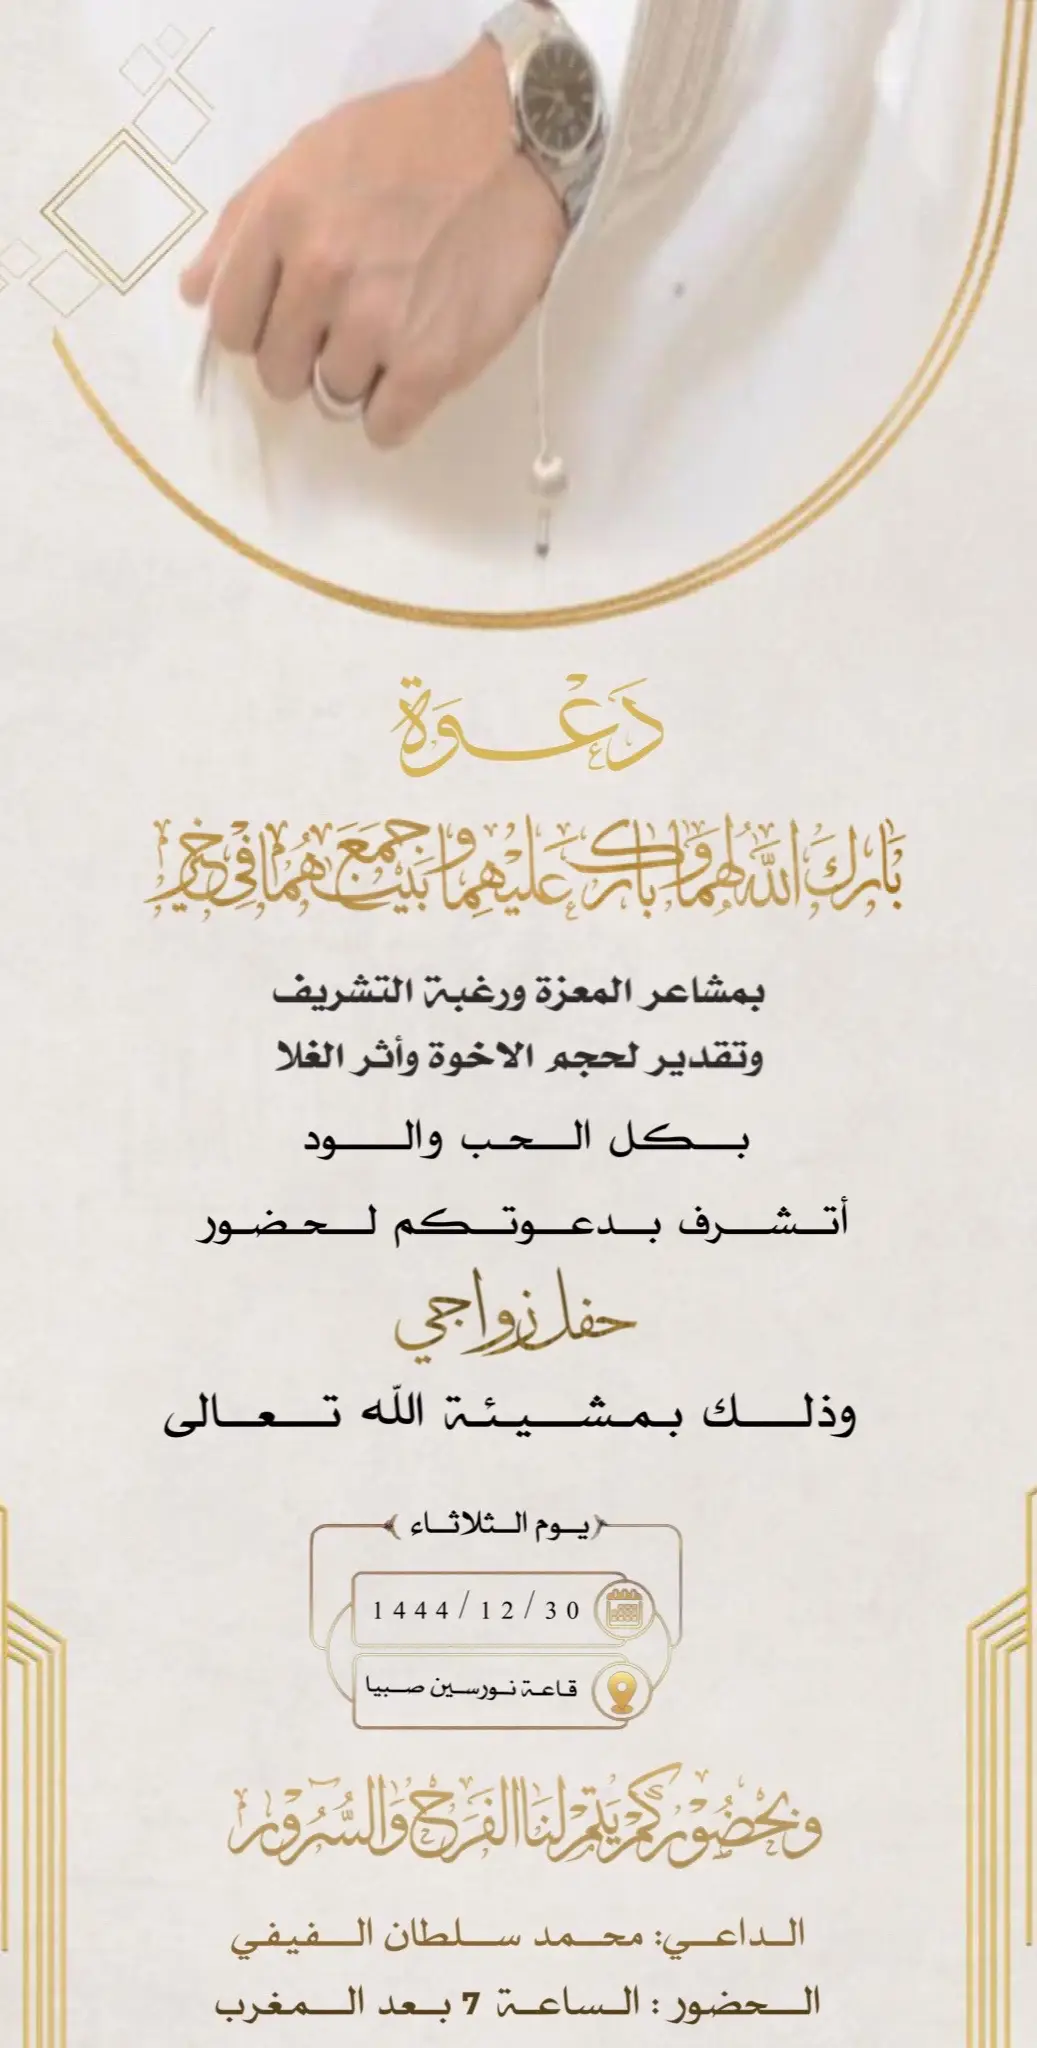 دعوة
بارك الله لهما وبارك عليهما وجمع بينهما في خير
بمشاعر المعزة ورغبة التشريف
وتقدير لحجم الاخوة وأثر الغلا
بكل الحب والود
أتشرف بدعوتكم لحضور
حفل زواجي
وذلك بمشيئة الله تعالى
يوم الثلاثاء
1444/12/30
قاعة نورسين صبيا
وبحضوركم يتم لنا الفرح والسرور
الداعي: محمد سلطان الفيفي
الحضور : الساعة 7 بعد المغرب